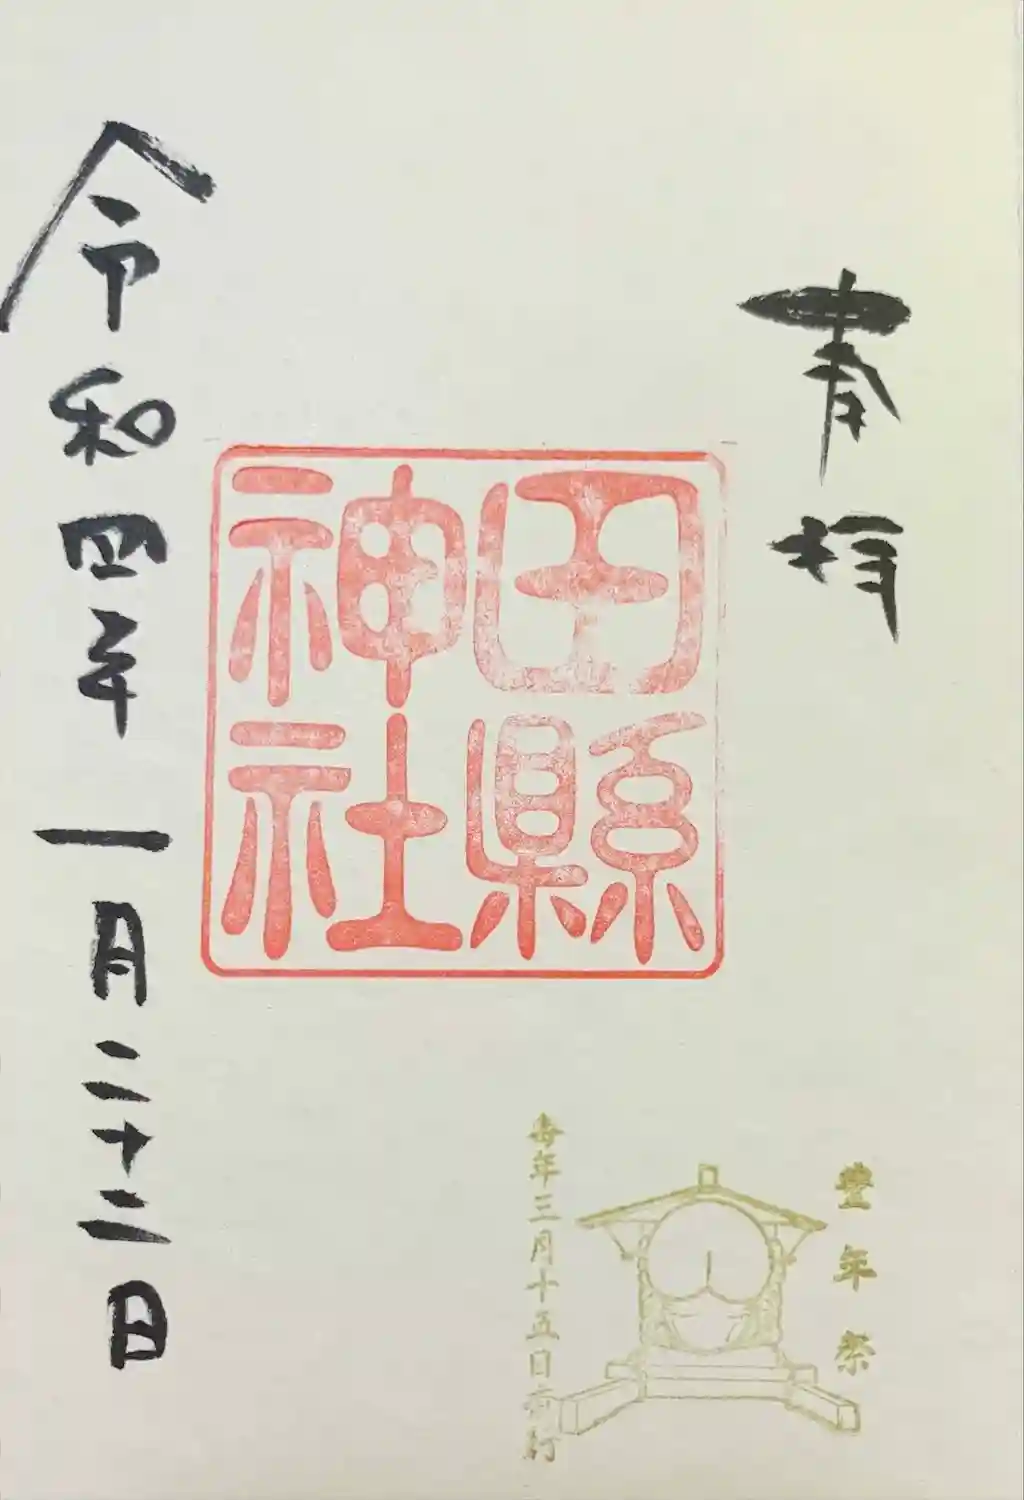 奉拝
田縣
神社
令和四年一月二十二日
豊年祭
毎年三月十五日斎行